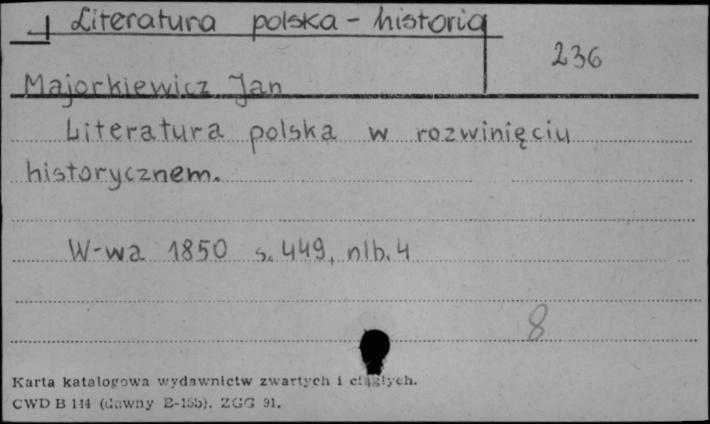 Literatura polska - historia
236
Majorkiewicz Jan
Literatura polska w rozwinięciu
historycznem.
W-wa 1850 s. 449, nlb. 4
8
Karta katalogowa wydawnictw zwartych i ciągłych.
CWD B 144 (dawny B-15b). ZGG 91.